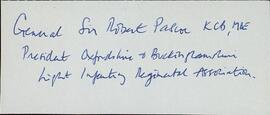 General Sir Robert Pascoe KCB, MBE
President Oxfordshire & Buckinghamshire
Light Infantry Regimental Association.